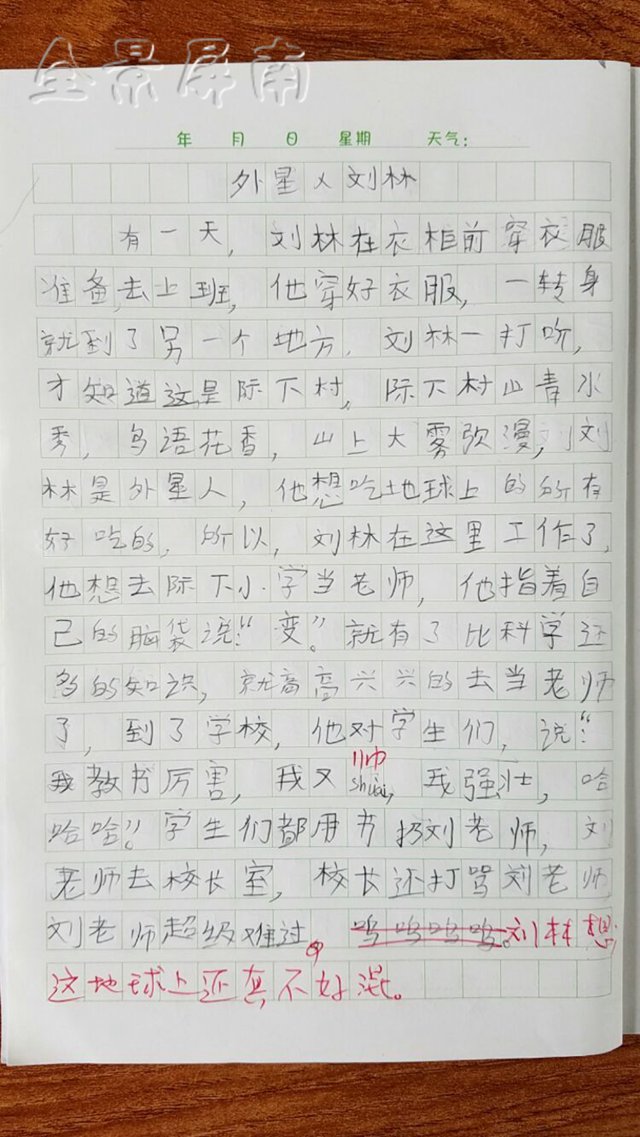 全景屏南
年 月 日 星期 天气:
外星人刘林
有一天，刘林在衣柜前穿衣服
准备去上班，他穿好衣服，一转身
就到了另一个地方。刘林一打听，
才知道这是际下村，际下村山青水
秀，鸟语花香，山上大雾弥漫，刘
林是外星人，他想吃地球上的所有
好吃的，所以，刘林在这里工作了，
他想去际下小学当老师，他指着自
己的脑袋说：“变”。就有了比科学还
多的知识，就高高兴兴的去当老师
了，到了学校，他对学生们，说：“
帅
我教书厉害，我又shuài，我强壮，哈
哈哈”。学生们都用书扔刘老师，刘
老师去校长室，校长还打骂刘老师
刘老师超级难过。呜呜呜呜。刘林想，
这地球上还真不好混。